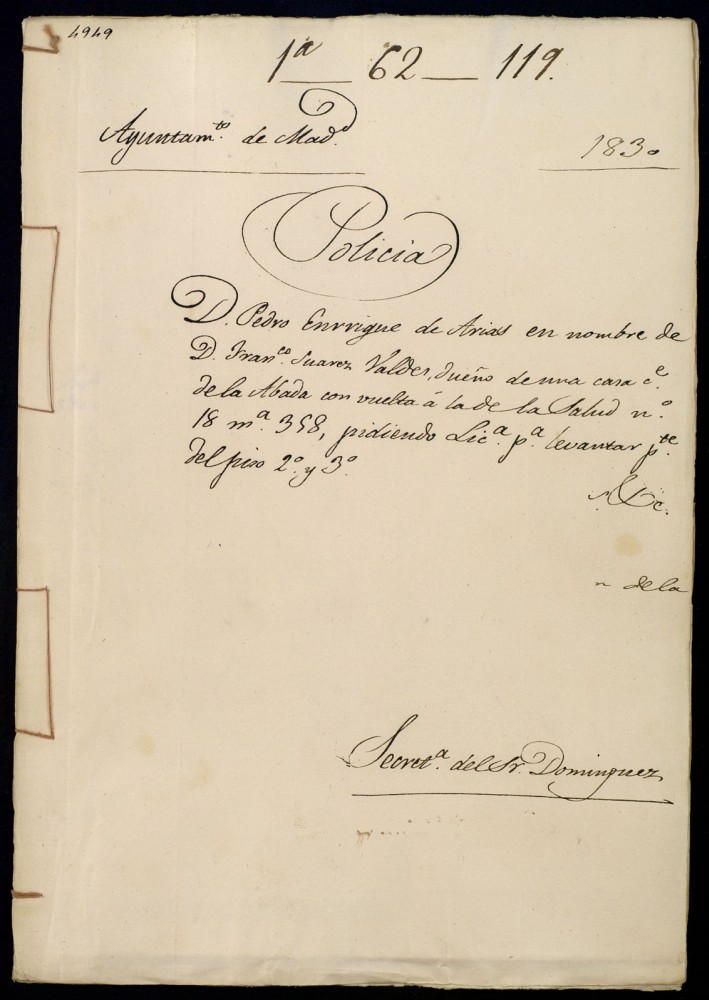 4949
1ª — 62 — 119.
Ayuntam.to de Mad.d
1830
Policia
D. Pedro Enrrique de Arias en nombre de
D. Fran.co Suarez Valdes, dueño de una casa c.e
de la Abada con vuelta á la de la Salud n.o
18 m.a 358, pidiendo Lic.a p.a levantar p.te
del piso 2.o y 3.o
de la
Secret.a del Sr. Dominguez